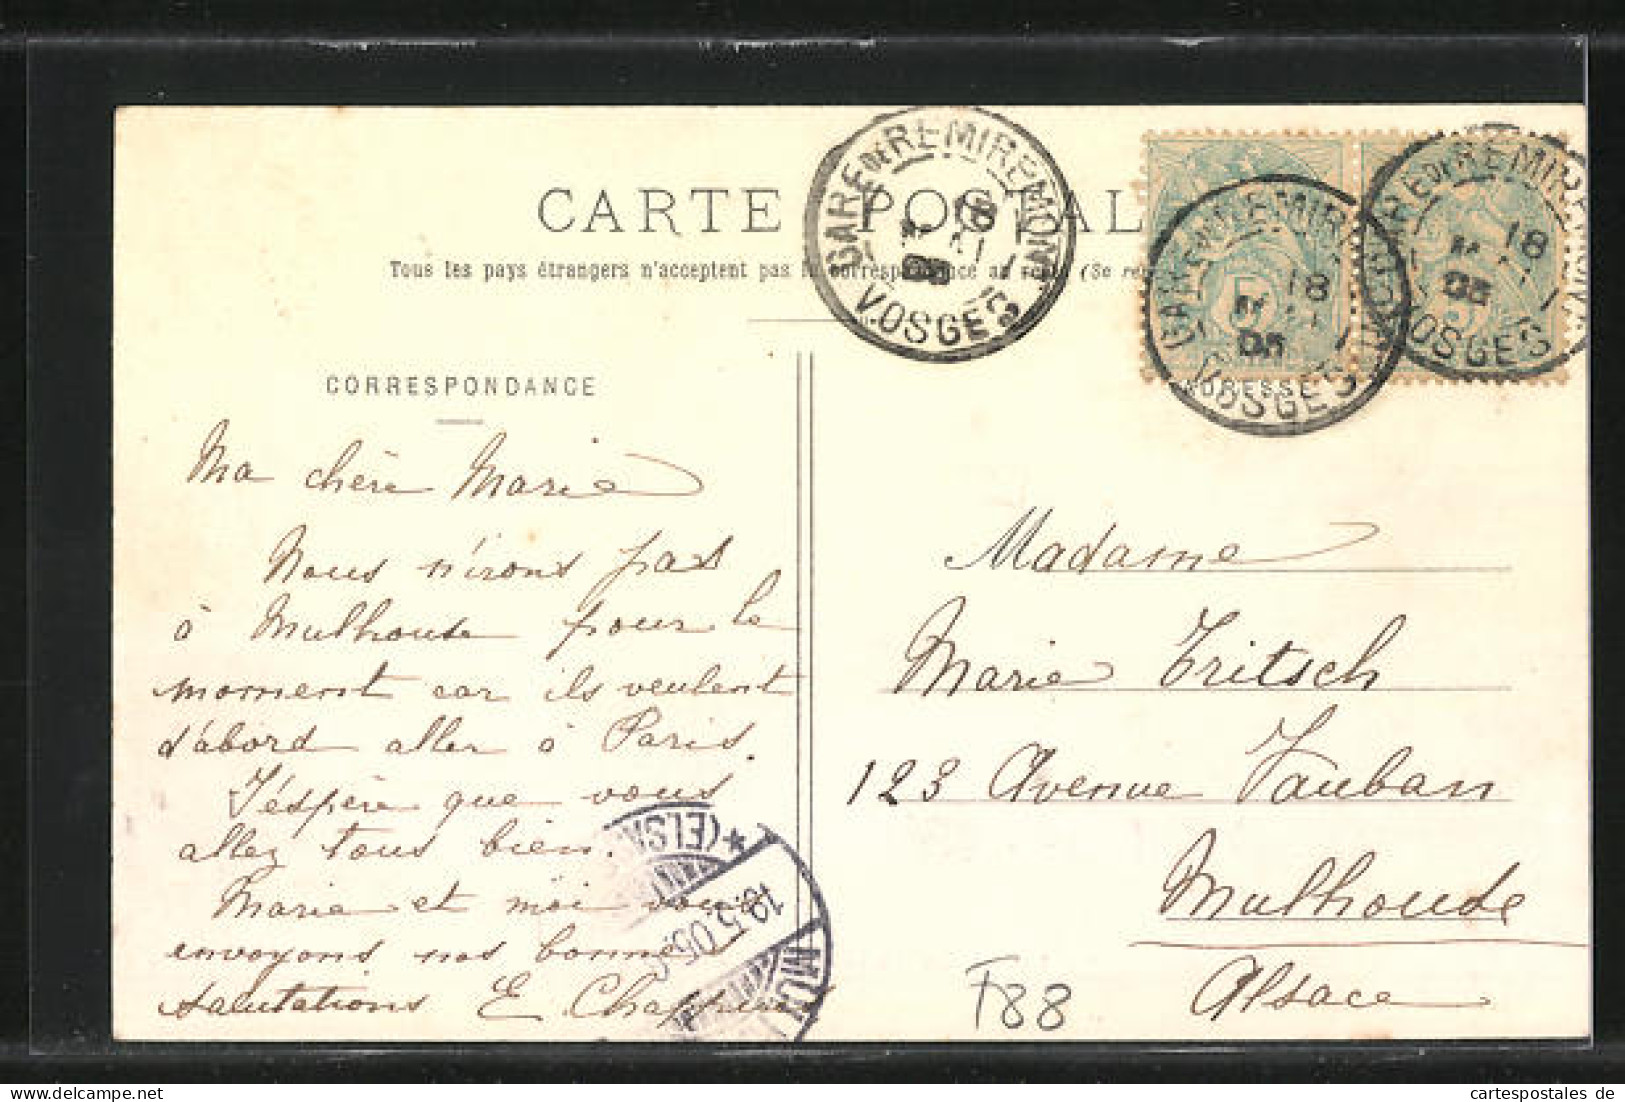 CARTE POSTALE
Tous les pays étrangers n'acceptent pas la correspondance au recto (Se re
CORRESPONDANCE
ADRESSE
GARE DE REMIREMONT
18
MAI
05
VOSGES
GARE DE REMIREMONT
18
MAI
05
VOSGES
GARE DE REMIREMONT
18
MAI
05
VOSGES
5
5
Ma chère Marie
Nous n'irons pas
à Mulhouse pour le
moment car ils veulent
d'abord aller à Paris.
J'éspère que vous
allez tous bien.
Marie et moi vous
envoyons nos bonnes
salutations E.
Madame
Marie Fritsch
123 Avenue Vauban
Mulhouse
Alsace
(ELSA
19.5.05.
F88
cartespostales de